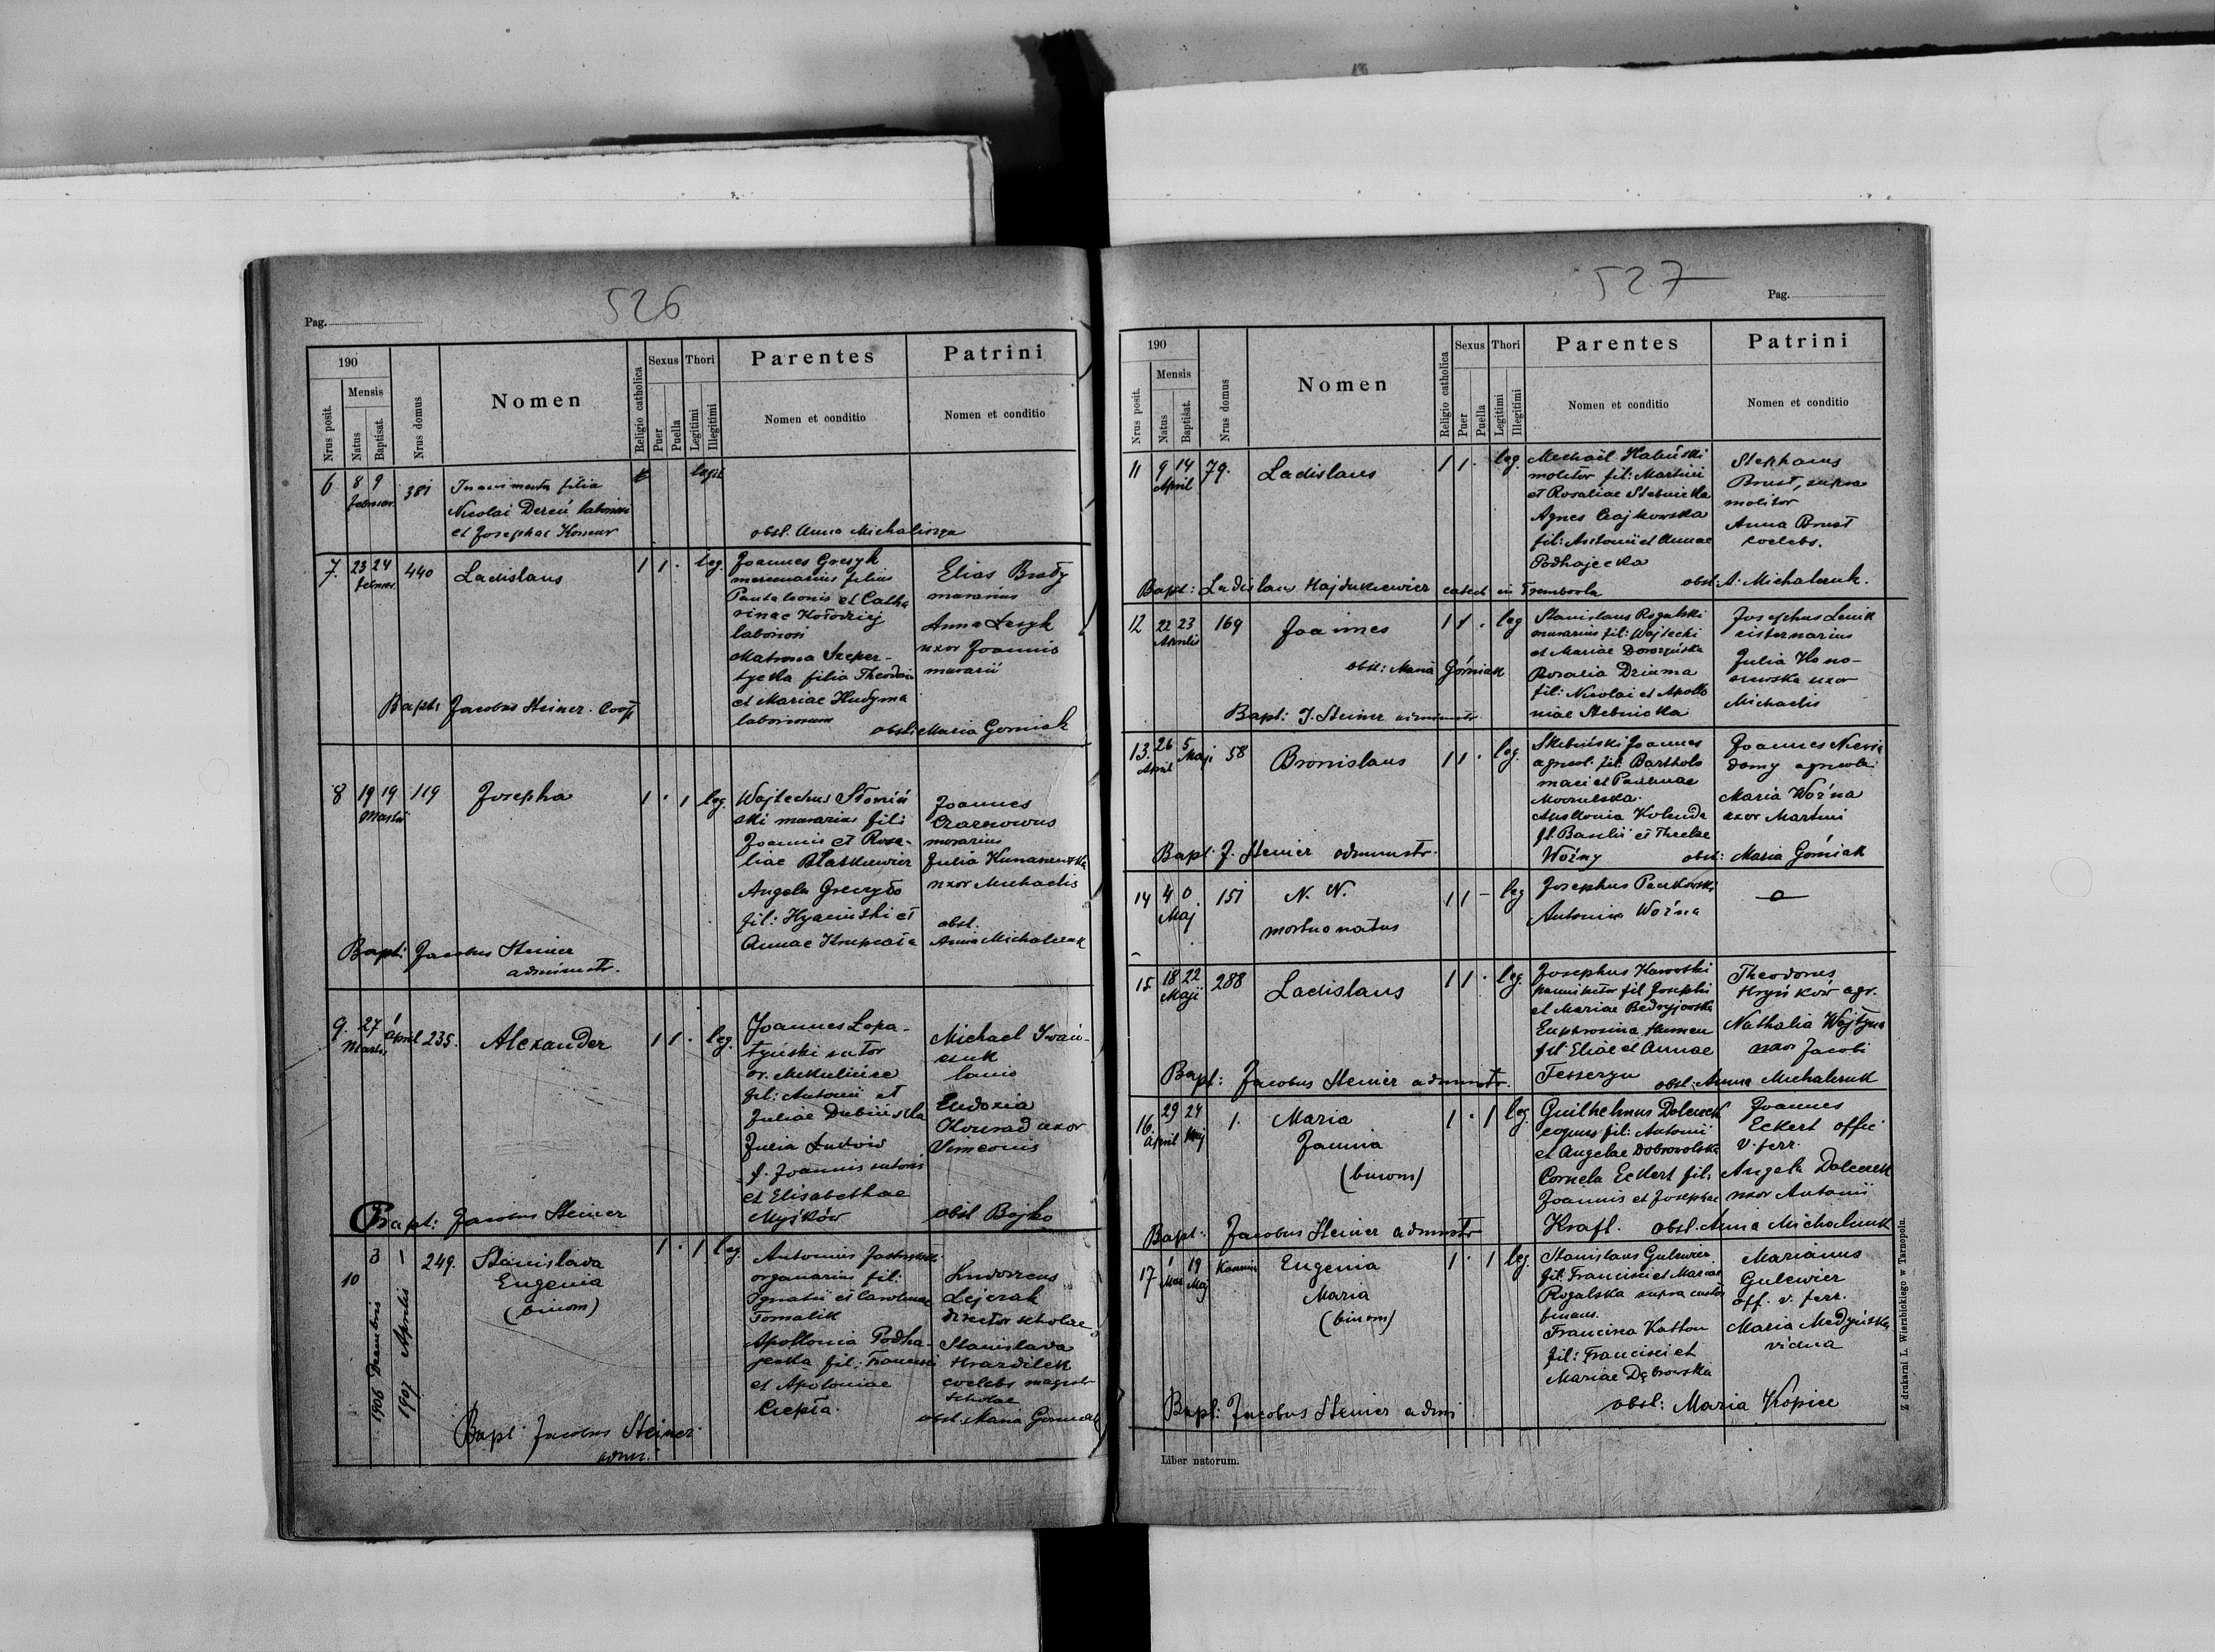 526
Pag.
190
Mensis
Nrus posit.
Natus
Baptisat.
Nrus domus
Nomen
Religio catholica
Sexus
Puer
Puella
Thori
Legitimi
Illegitimi
Parentes
Nomen et conditio
Patrini
Nomen et conditio
6 8 9 381 filia
Nicolai Dereń
et Josephae
obst. Anna
7. 23 24 440 Ladislaus 1 1 . leg.
Joannes Gresyk
mercenarius filius
Pantaleonis et Catha
rinae Kołodziej
Matrona Szeper-
tycka filia Theodori
et Mariae Hudyma
Elias Braty
murarius
Anna Lesyk
uxor Joannis
murarii
Bapt: Jacobus Steiner. Coop
obst: Maria Gorniak
8 19 19 119 Josepha 1 . 1 leg.
Martii
Wojtechus Słomiń
ski murarius fil:
Joannis et Rosa-
liae Błaskiewicz
Angela Greczyło
fil: Hyacinthi et
Annae
Joannes
murarius
Julia
uxor Michaelis
obst.
Anna Michalczuk
Bapt: Jacobus Steiner
administr.
9. 27 1 235. Alexander 1 1 . leg.
Martii April
Joannes Lopa-
tyński sutor
or. Mikulińce
fil: Antonii et
Juliae Dubińska
Julia Ludwiv
f. Joannis sutoris
et Elisabethae
Myśków
Michael Iwań-
czuk
lanio
Eudoxia
Konrad uxor
Simeonis
obst Bojko
Bapt: Jacobus Steiner
10 3 1 249. Stanislava 1 . 1 leg.
1906 Decembris
1907 Aprilis
Eugenia
(binom)
Antonius
organarius fil:
Ignatii et Carolinae
Tomalik
Apollonia Podha-
jecka fil: Francisci
et Apoloniae
Czepła.
Ludovicus
Lejczak
director scholae
Stanislava
Hrazdilek
coelebs magistr
scholae
obst. Maria Gorniak
Bapt: Jacobus Steiner
admi.
527
Pag.
190
Mensis
Nrus posit.
Natus
Baptisat.
Nrus domus
Nomen
Religio catholica
Sexus
Puer
Puella
Thori
Legitimi
Illegitimi
Parentes
Nomen et conditio
Patrini
Nomen et conditio
11 9 14 79. Ladislaus 1 1 . leg.
April
Michaël Haliński
molitor fil: Martini
et Rosaliae Stebnicka
Agnes Czajkowska
fil: Antonii et Annae
Podhajecka
Stephanus
Brust, supra
molitor
Anna Brust
coelebs.
Bapt: Ladislaus Hajdukiewicz catech in Trembovla
obst: A. Michalczuk.
12 22 23 169 Joannes 1 1 . leg
Aprilis
Stanislaus Rogalski
murarius fil: Wojtechi
et Mariae Doroszyńska
Rosalia Dziuma
fil: Nicolai et Apollo
niae Stebnicka
Josephus Lenik
cisternarius
Julia Kono-
uxor
Michaelis
obst: Maria Górniak
Bapt: J. Steiner administr.
13. 26 5 58 Bronislaus 1 1 . leg.
April Maji
Skibiński Joannes
agricol. fil. Bartholo
maei et Paulinae
Apollonia Kolenda
fil. Basilii et Theclae
Woźny
Joannes Niewia
domy agricola
Maria Woźna
uxor Martini
Bapt. J. Steiner administr.
obst: Maria Górniak
14 4 0 151 N. N. 1 1 - leg
Maj
mortuo natus
Josephus
Antonina Woźna
15. 18 22 288 Ladislaus 1 1 . leg.
Maji
Josephus Kawecki
fil Josephi
et Mariae
Euphrosina Humen
fil Eliae et Annae
Tesseryn
Theodorus
Hryńków agr.
Nathalia Wojtyna
uxor Jacobi
Bapt: Jacobus Steiner administr.
obst: Anna Michalczuk
16. 29 24 1. Maria 1 . 1 leg.
April Maj
Janina
(binom)
Guilhelmus Dolczek
coquus fil: Antonii
et Angelae Dobrowolska
Cornela Eckert fil:
Joannis et Josephae
Kraft.
Joannes
Eckert offic
v. ferr.
Angela Dolczek
uxor Antonii
Bapt: Jacobus Steiner administr
obst. Anna Michalczuk
17 1 19 Eugenia 1 . 1 leg.
Mar Maj
Maria
(binom)
Stanislaus Gulewicz
fil: Francisci et Mariae
Rogalska supra custos
finans.
Francisca Katton
fil: Francisci et
Mariae Dębrowska
Marianus
Gulewicz
off. v. ferr.
Maria Medyńska
vidua
Bapt: Jacobus Steiner admi
obst: Maria Kopiec
Liber natorum.
Z drukarni L. Wierzbickiego w Tarnopolu.